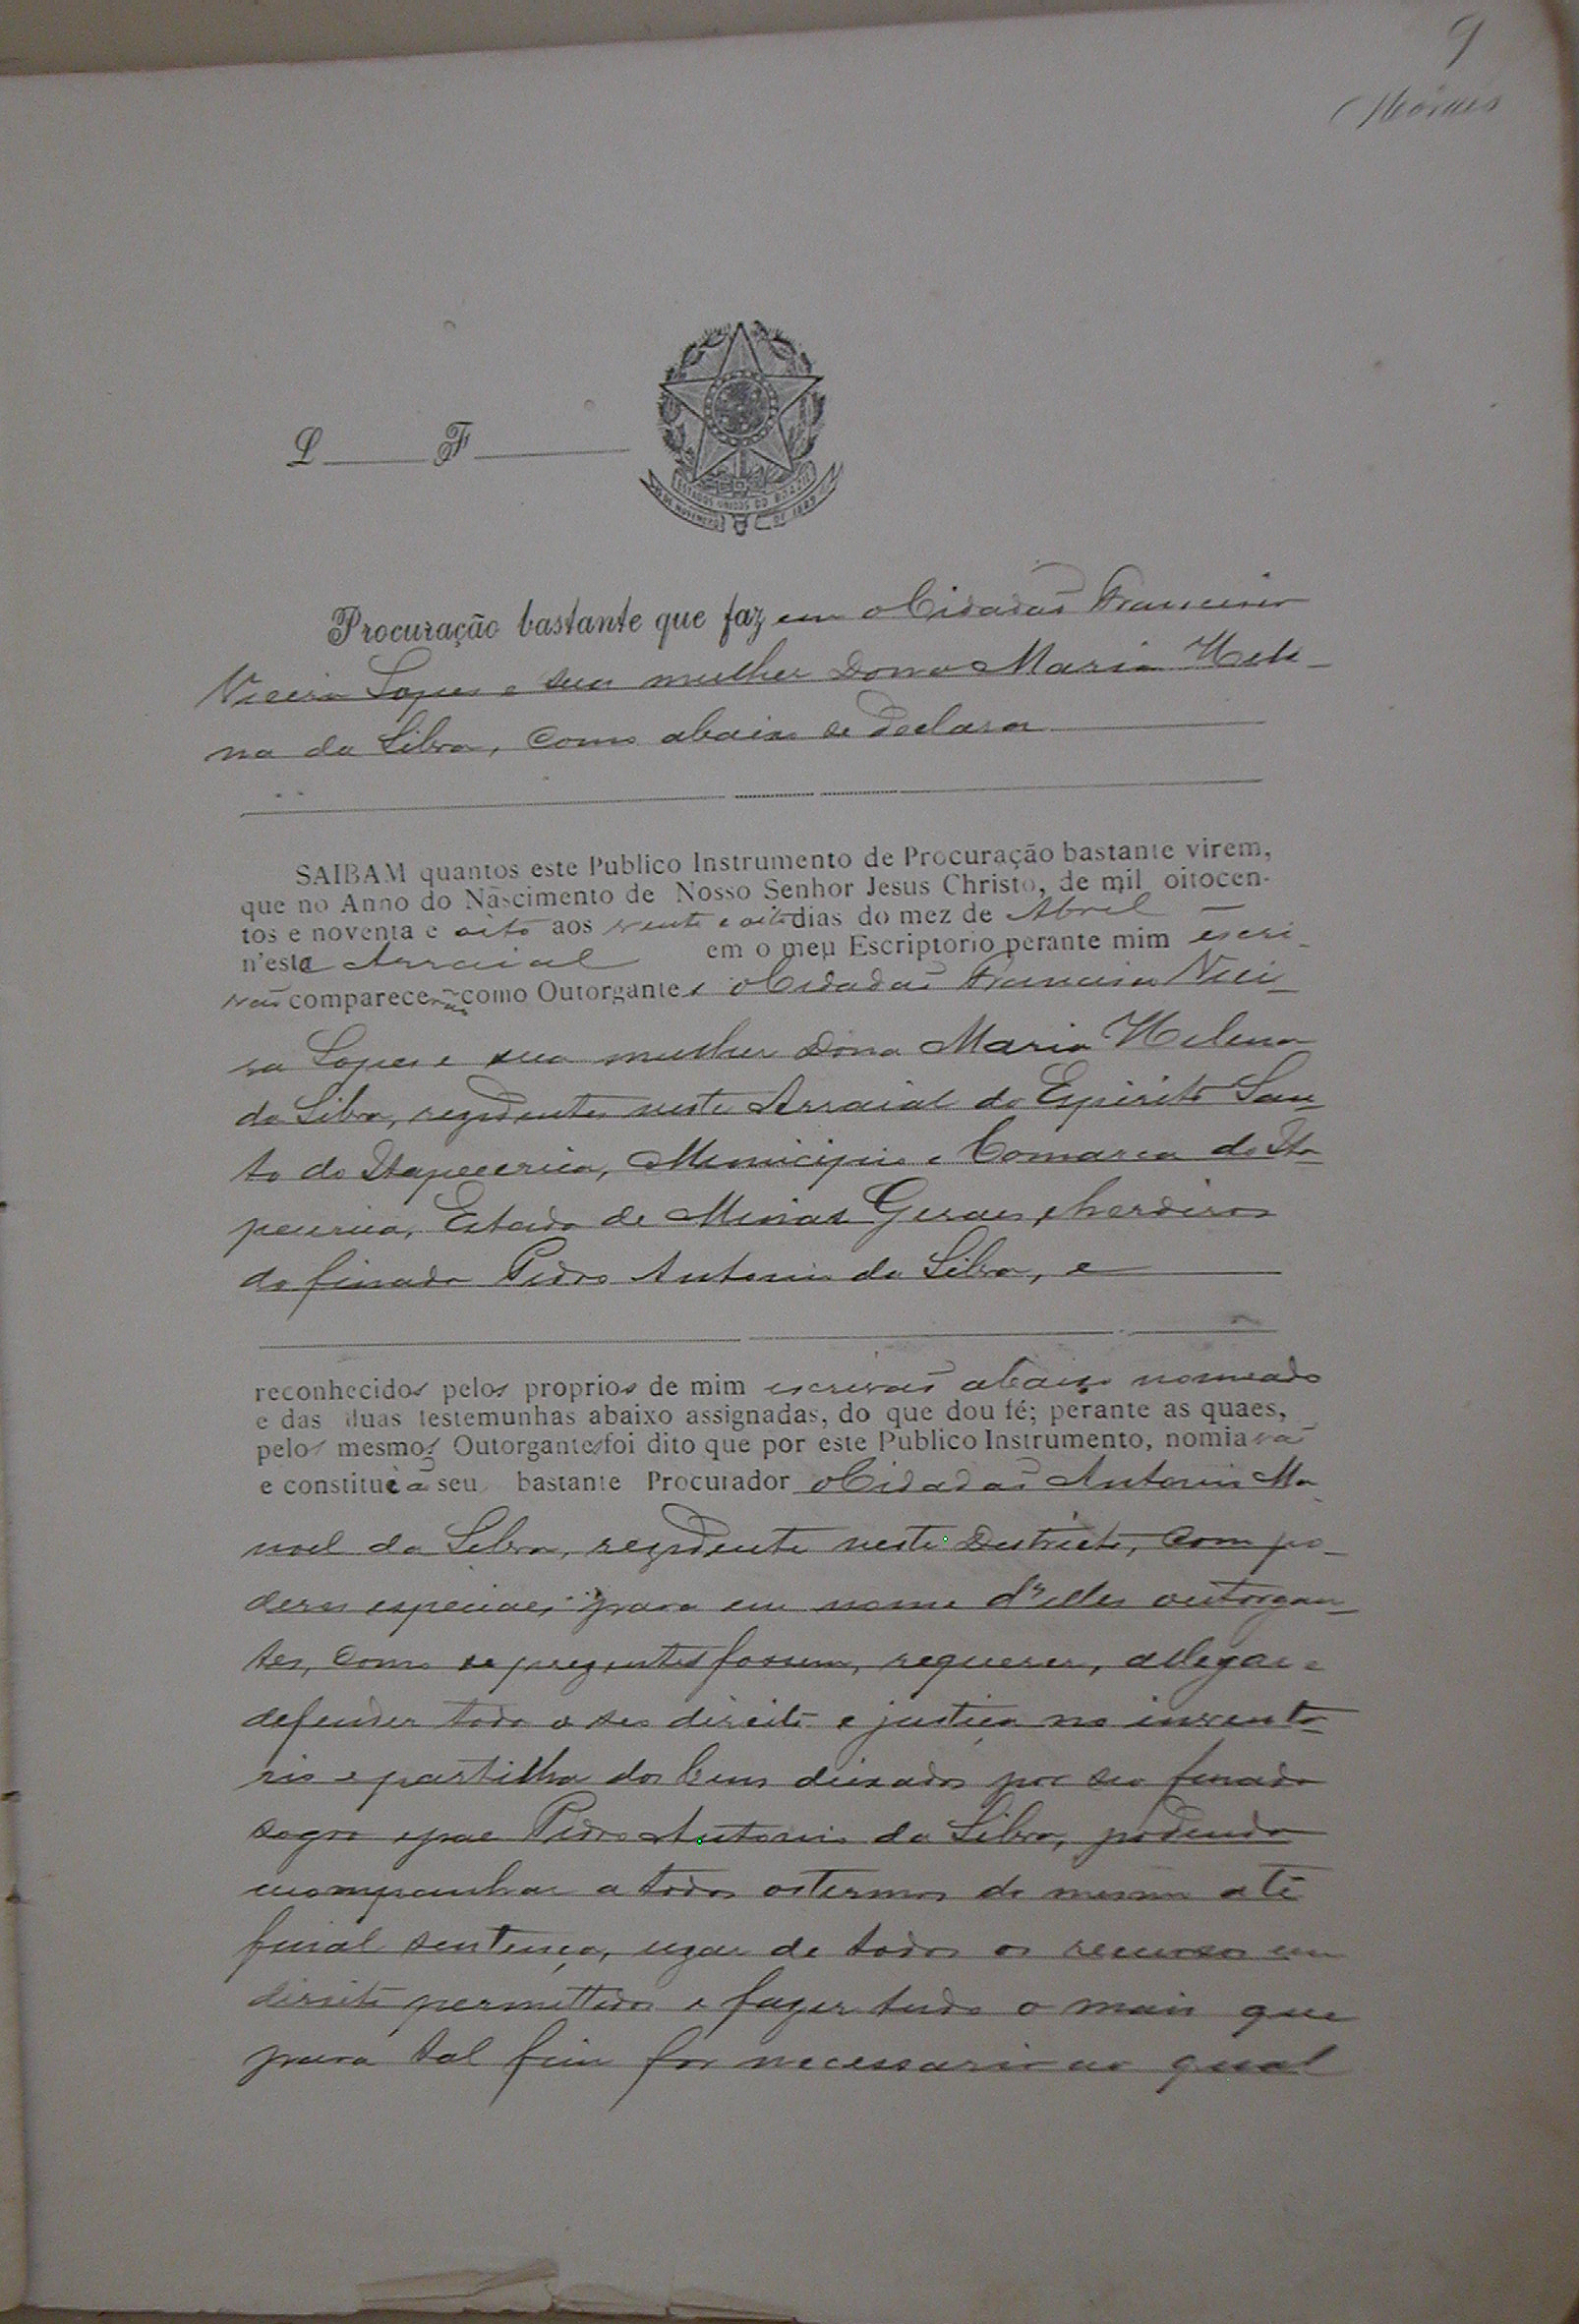 9
Moraes
L F
ESTADOS UNIDOS DO BRAZIL
15 DE NOVEMBRO DE 1889
Procuração bastante que fazem o Cidadaõ Francisco
Vieira Lopes e sua mulher Dona Maria Hele-
na da Silva, como abaixo se declara
SAIBAM quantos este Publico Instrumento de Procuração bastante virem,
que no Anno do Nascimento de Nosso Senhor Jesus Christo, de mil oitocen-
tos e noventa e oito aos vente e oito dias do mez de Abril
n'este Arraial em o meu Escriptorio perante mim escri-
vaõ comparecerão como Outorgantes o Cidadaõ Francisco Viei-
ra Lopes e sua mulher Dona Maria Helena
da Silva, rezidentes neste Arraial do Espirito San-
to do Itapecerica, Municipio e Comarca de Ita-
pecerica, Estado de Minas Geraes, herdeiros
do finado Pedro Antonio da Silva, e
reconhecidos pelos proprios de mim escrivaõ abaixo nomeado
e das duas testemunhas abaixo assignadas, do que dou fé; perante as quaes,
pelos mesmos Outorgantes foi dito que por este Publico Instrumento, nomiavaõ
e constituiaõ seu bastante Procurador o Cidadaõ Antonio Ma
noel da Silva, rezidente neste Districto, com po-
deres especiaes para em nome d'elles outorgan-
tes, como se prezentes fossem, requerer, allegar e
defender todo o seo direito e justiça no inventa-
rio e partilha dos bens deixados por seo finado
sogro e pae Pedro Antonio da Silva, podendo
acompanhar a todos os termos do mesmo até
final sentença, uzar de todos os recursos em
direito permettidos e fazer tudo o mais que
para tal fim for necessario ao qual